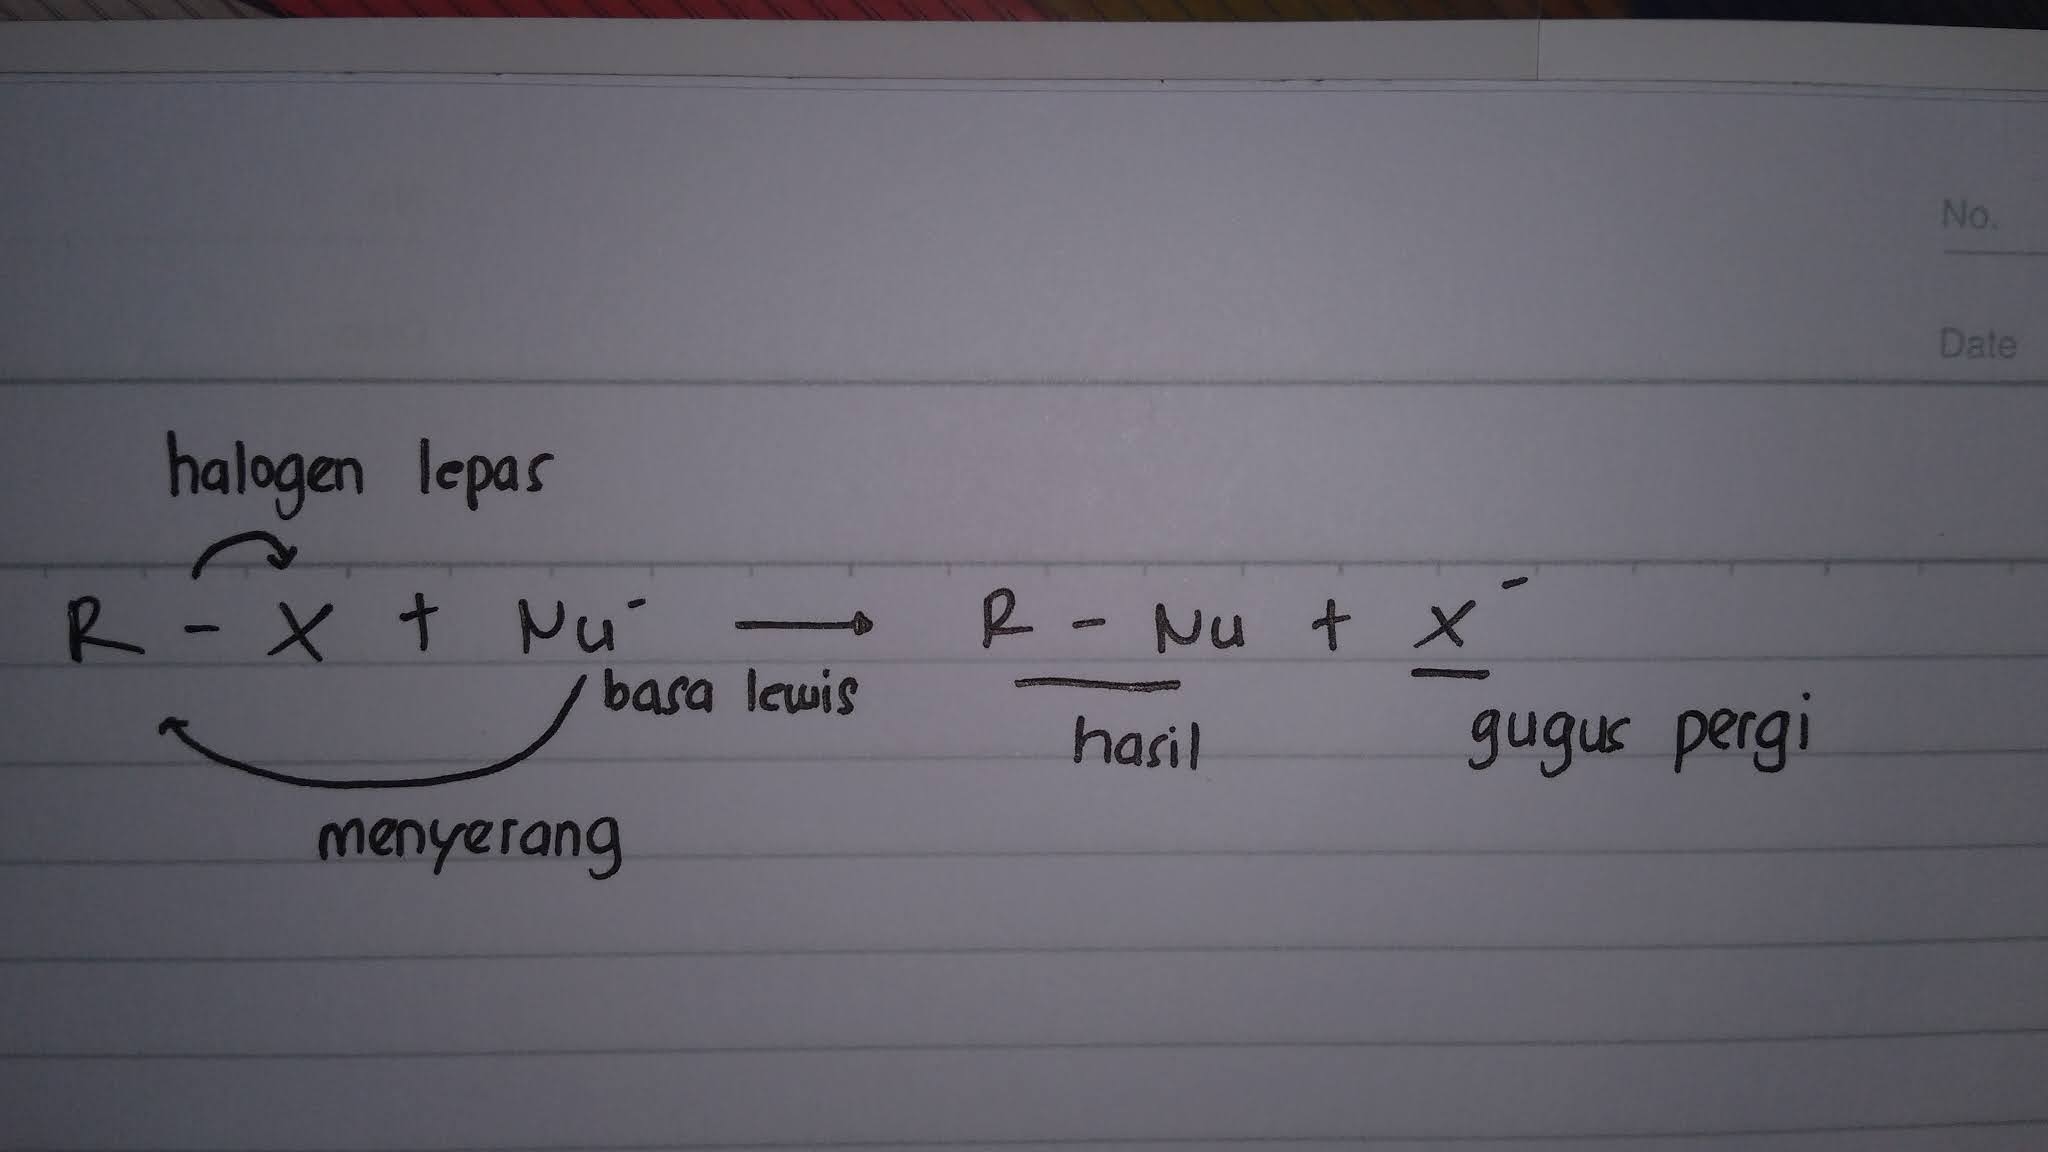 No.
Date
halogen lepas
R - X + Nu⁻ → R - Nu + X⁻
basa lewis
hasil
gugus pergi
menyerang